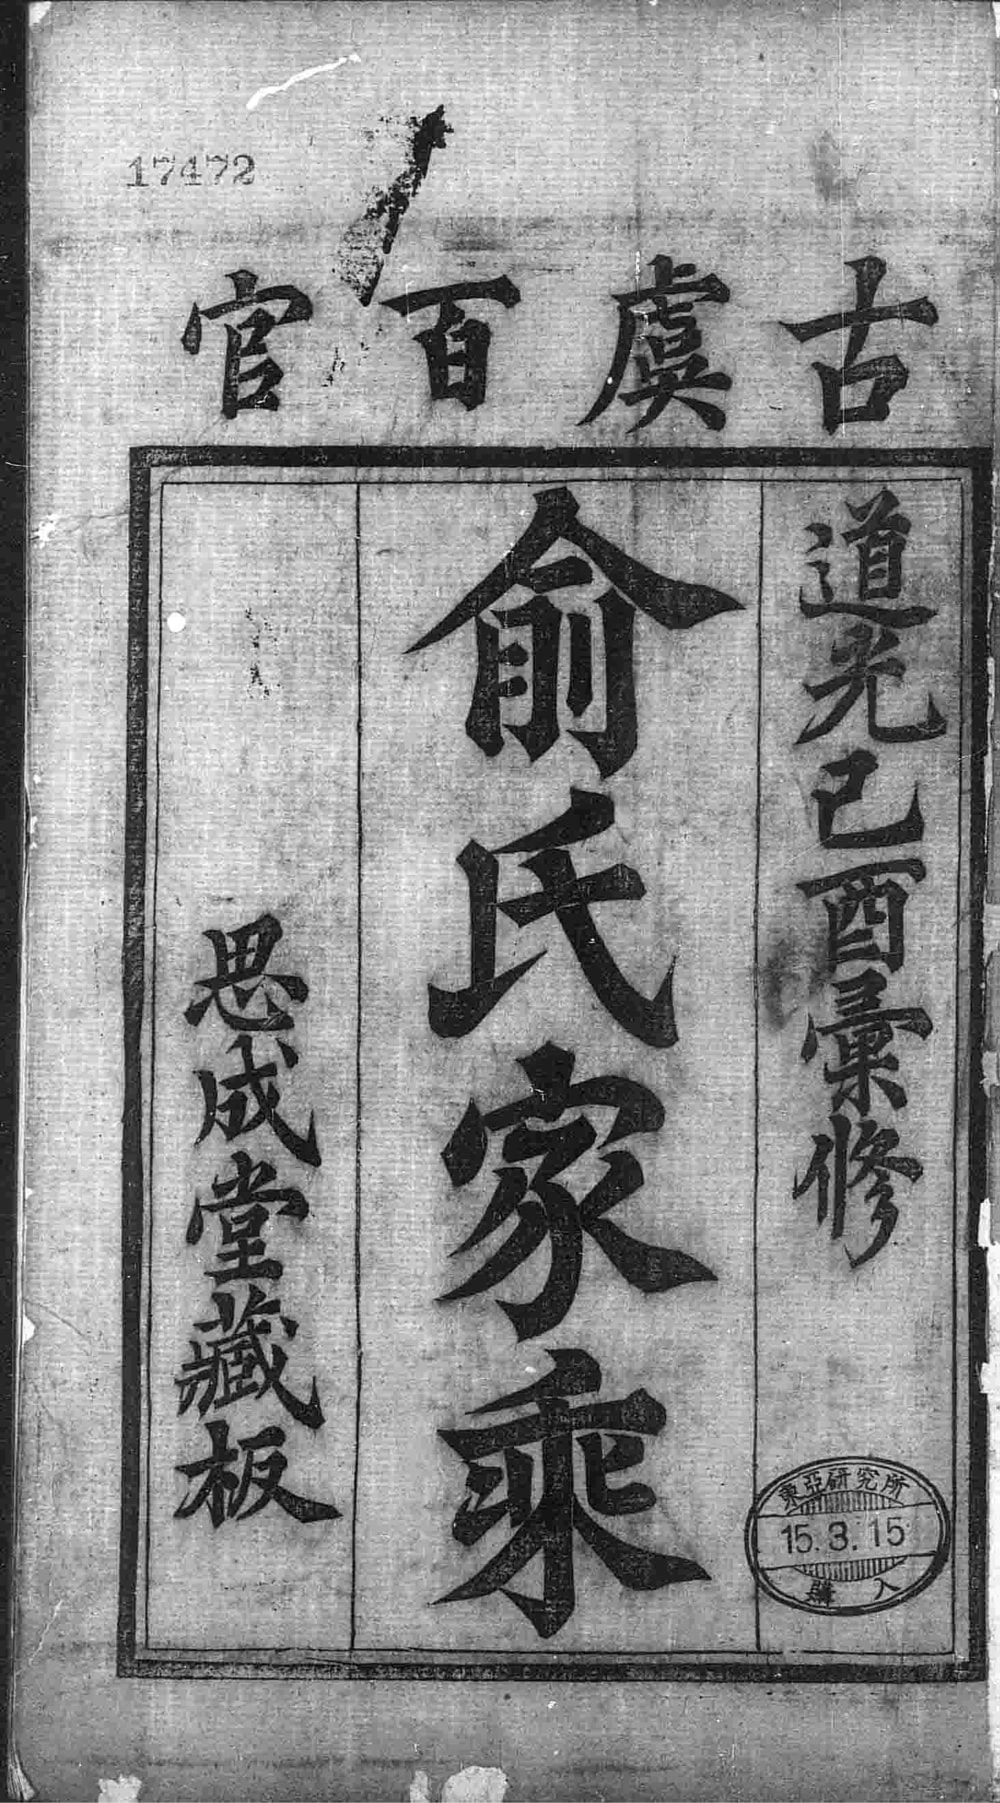 17472
古虞百官
道光己酉彙修
俞氏家乘
思成堂藏板
東亞研究所
15.3.15
購入